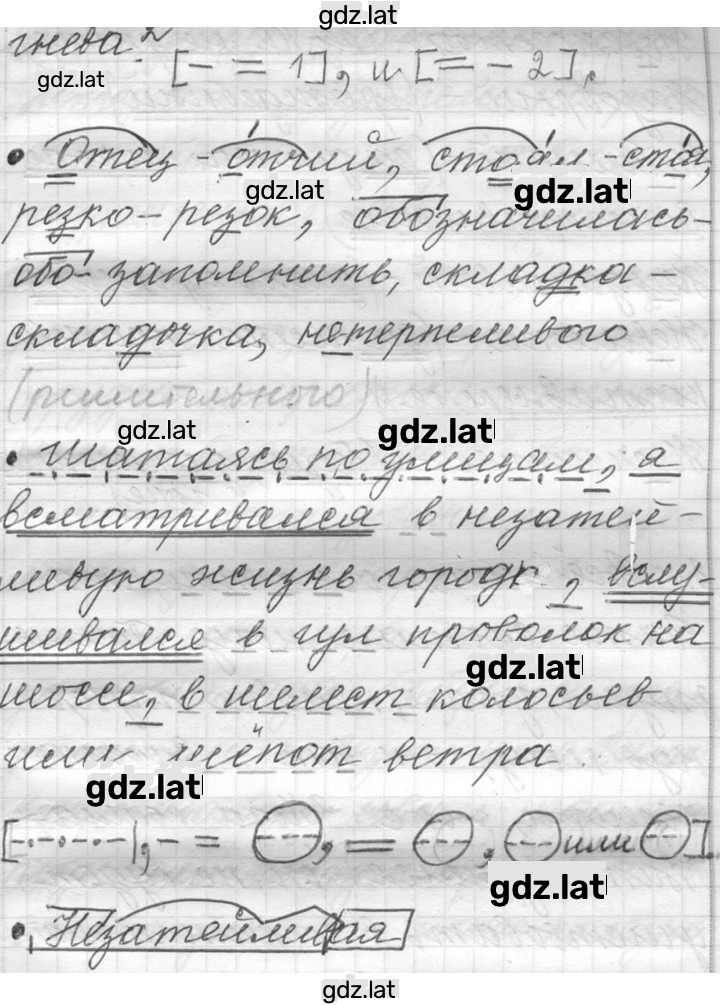 gdz.lat
гнева²
gdz.lat
[- = 1], и [= - 2].
• Отец - отчий, стоял - стоя,
gdz.lat
gdz.lat
резко - резок, обозначилась -
обо- запомнить, складка -
складочка, нетерпеливого
(решительного)
gdz.lat
gdz.lat
• Шатаясь по улицам, я
всматривался в незатей-
ливую жизнь городк , вслу-
шивался в гул проволок на
gdz.lat
шоссе, в шелест колосьев
или шёпот ветра.
gdz.lat
[-.-.-.-|, - = (---), = (---), (---) или (---)].
gdz.lat
• Незатейливая
gdz.lat